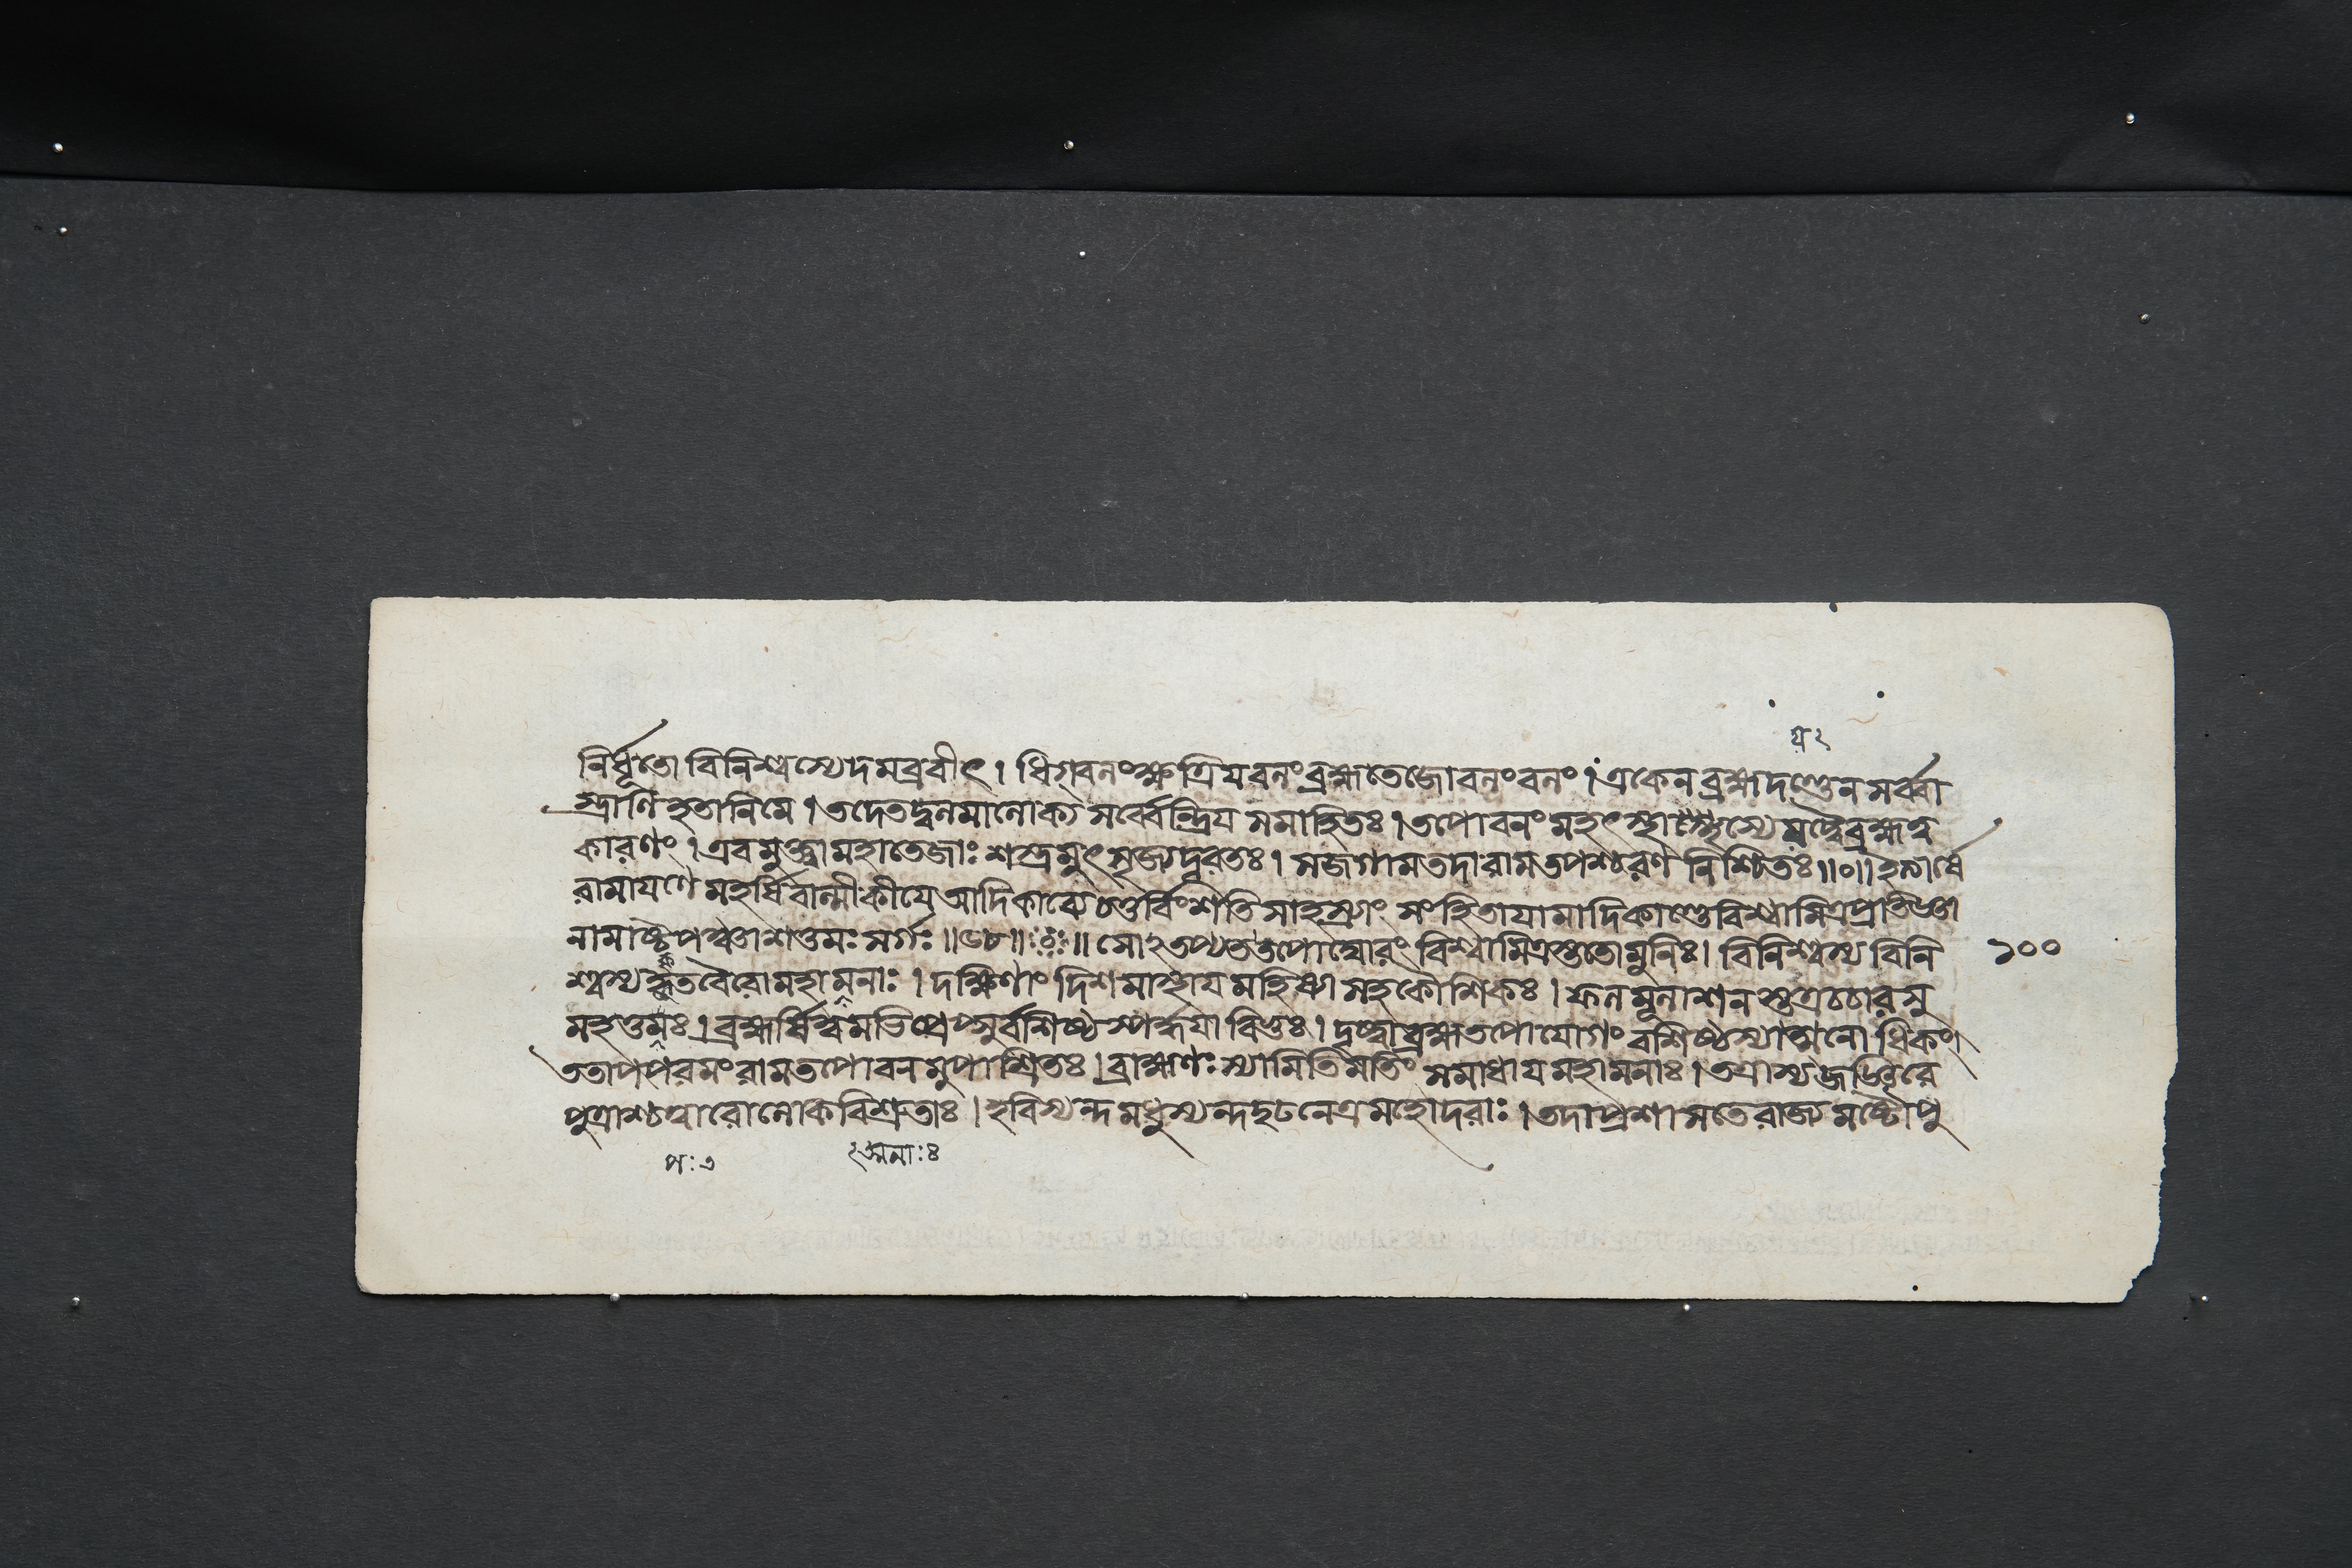 য ২
নির্ধূতো বিনিশ্বস্যেদমব্রবীৎ । ধিগ্বলং ক্ষত্রিযবলং ব্রহ্মতেজোবলং বলং । একেন ব্রহ্মদণ্ডেন সর্ব্বা
স্ত্রাণি হতানি মে । তদেতদ্বলমালোক্য সর্ব্বেন্দ্রিয সমাহিতঃ । তপোবলং মহৎ
কারণং । এবমুক্ত্বা মহাতেজাঃ শস্ত্রমুৎসৃজ্য দূরতঃ । স জগাম তদা রাম তপশ্চরণ নিশ্চিতঃ ॥০॥ ইত্যার্ষে
রামাযণে মহর্ষি বাল্মীকীযে আদিকাব্যে চতুর্বিংশতি সাহস্র্যাং সংহিতাযামাদিকাণ্ডে বিশ্বামিত্রপ্রতিজ্ঞা
নামাষ্টপঞ্চাশত্তমঃ সর্গঃ ॥৫৮॥ ॥ সোঽতপ্যত তপো ঘোরং বিশ্বামিত্রস্ততো মুনিঃ । বিনিশ্বস্য বিনি
১০০
শ্বস্য কৃতবৈরো মহামনাঃ । দক্ষিণাং দিশমাস্থায মহিষ্যা সহ কৌশিকঃ । ফলমূলাশনস্তত্র চচার সু
মহত্তমঃ । ব্রহ্মর্ষিত্বমভিপ্রেপ্সুর্বশিষ্ঠ স্পর্দ্ধযা বিতঃ । দৃষ্ট্বা ব্রহ্মতপোযোগং বশিষ্ঠস্যাত্মনো ধিকং ।
ততাপ পরমং রাম তপোবনমুপাশ্রিতঃ । ব্রাহ্মণঃ স্যামিতি মতিং সমাধায মহামনাঃ । তত্রাস্য জজ্ঞিরে
পুত্রাশ্চত্বারো লোকবিশ্রুতাঃ । হবিস্যন্দ মধুস্যন্দ দৃঢনেত্র মহোদরাঃ । তদা প্রশাসতে রাজ্যমষ্টৌ পু